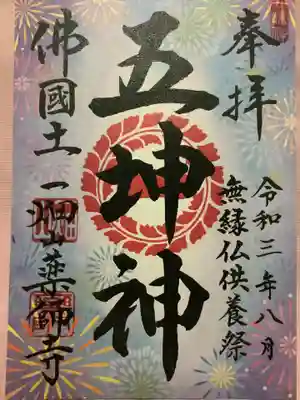 奉拝
令和三年八月
無縁仏供養祭
五坤神
佛國土一畑山薬師寺